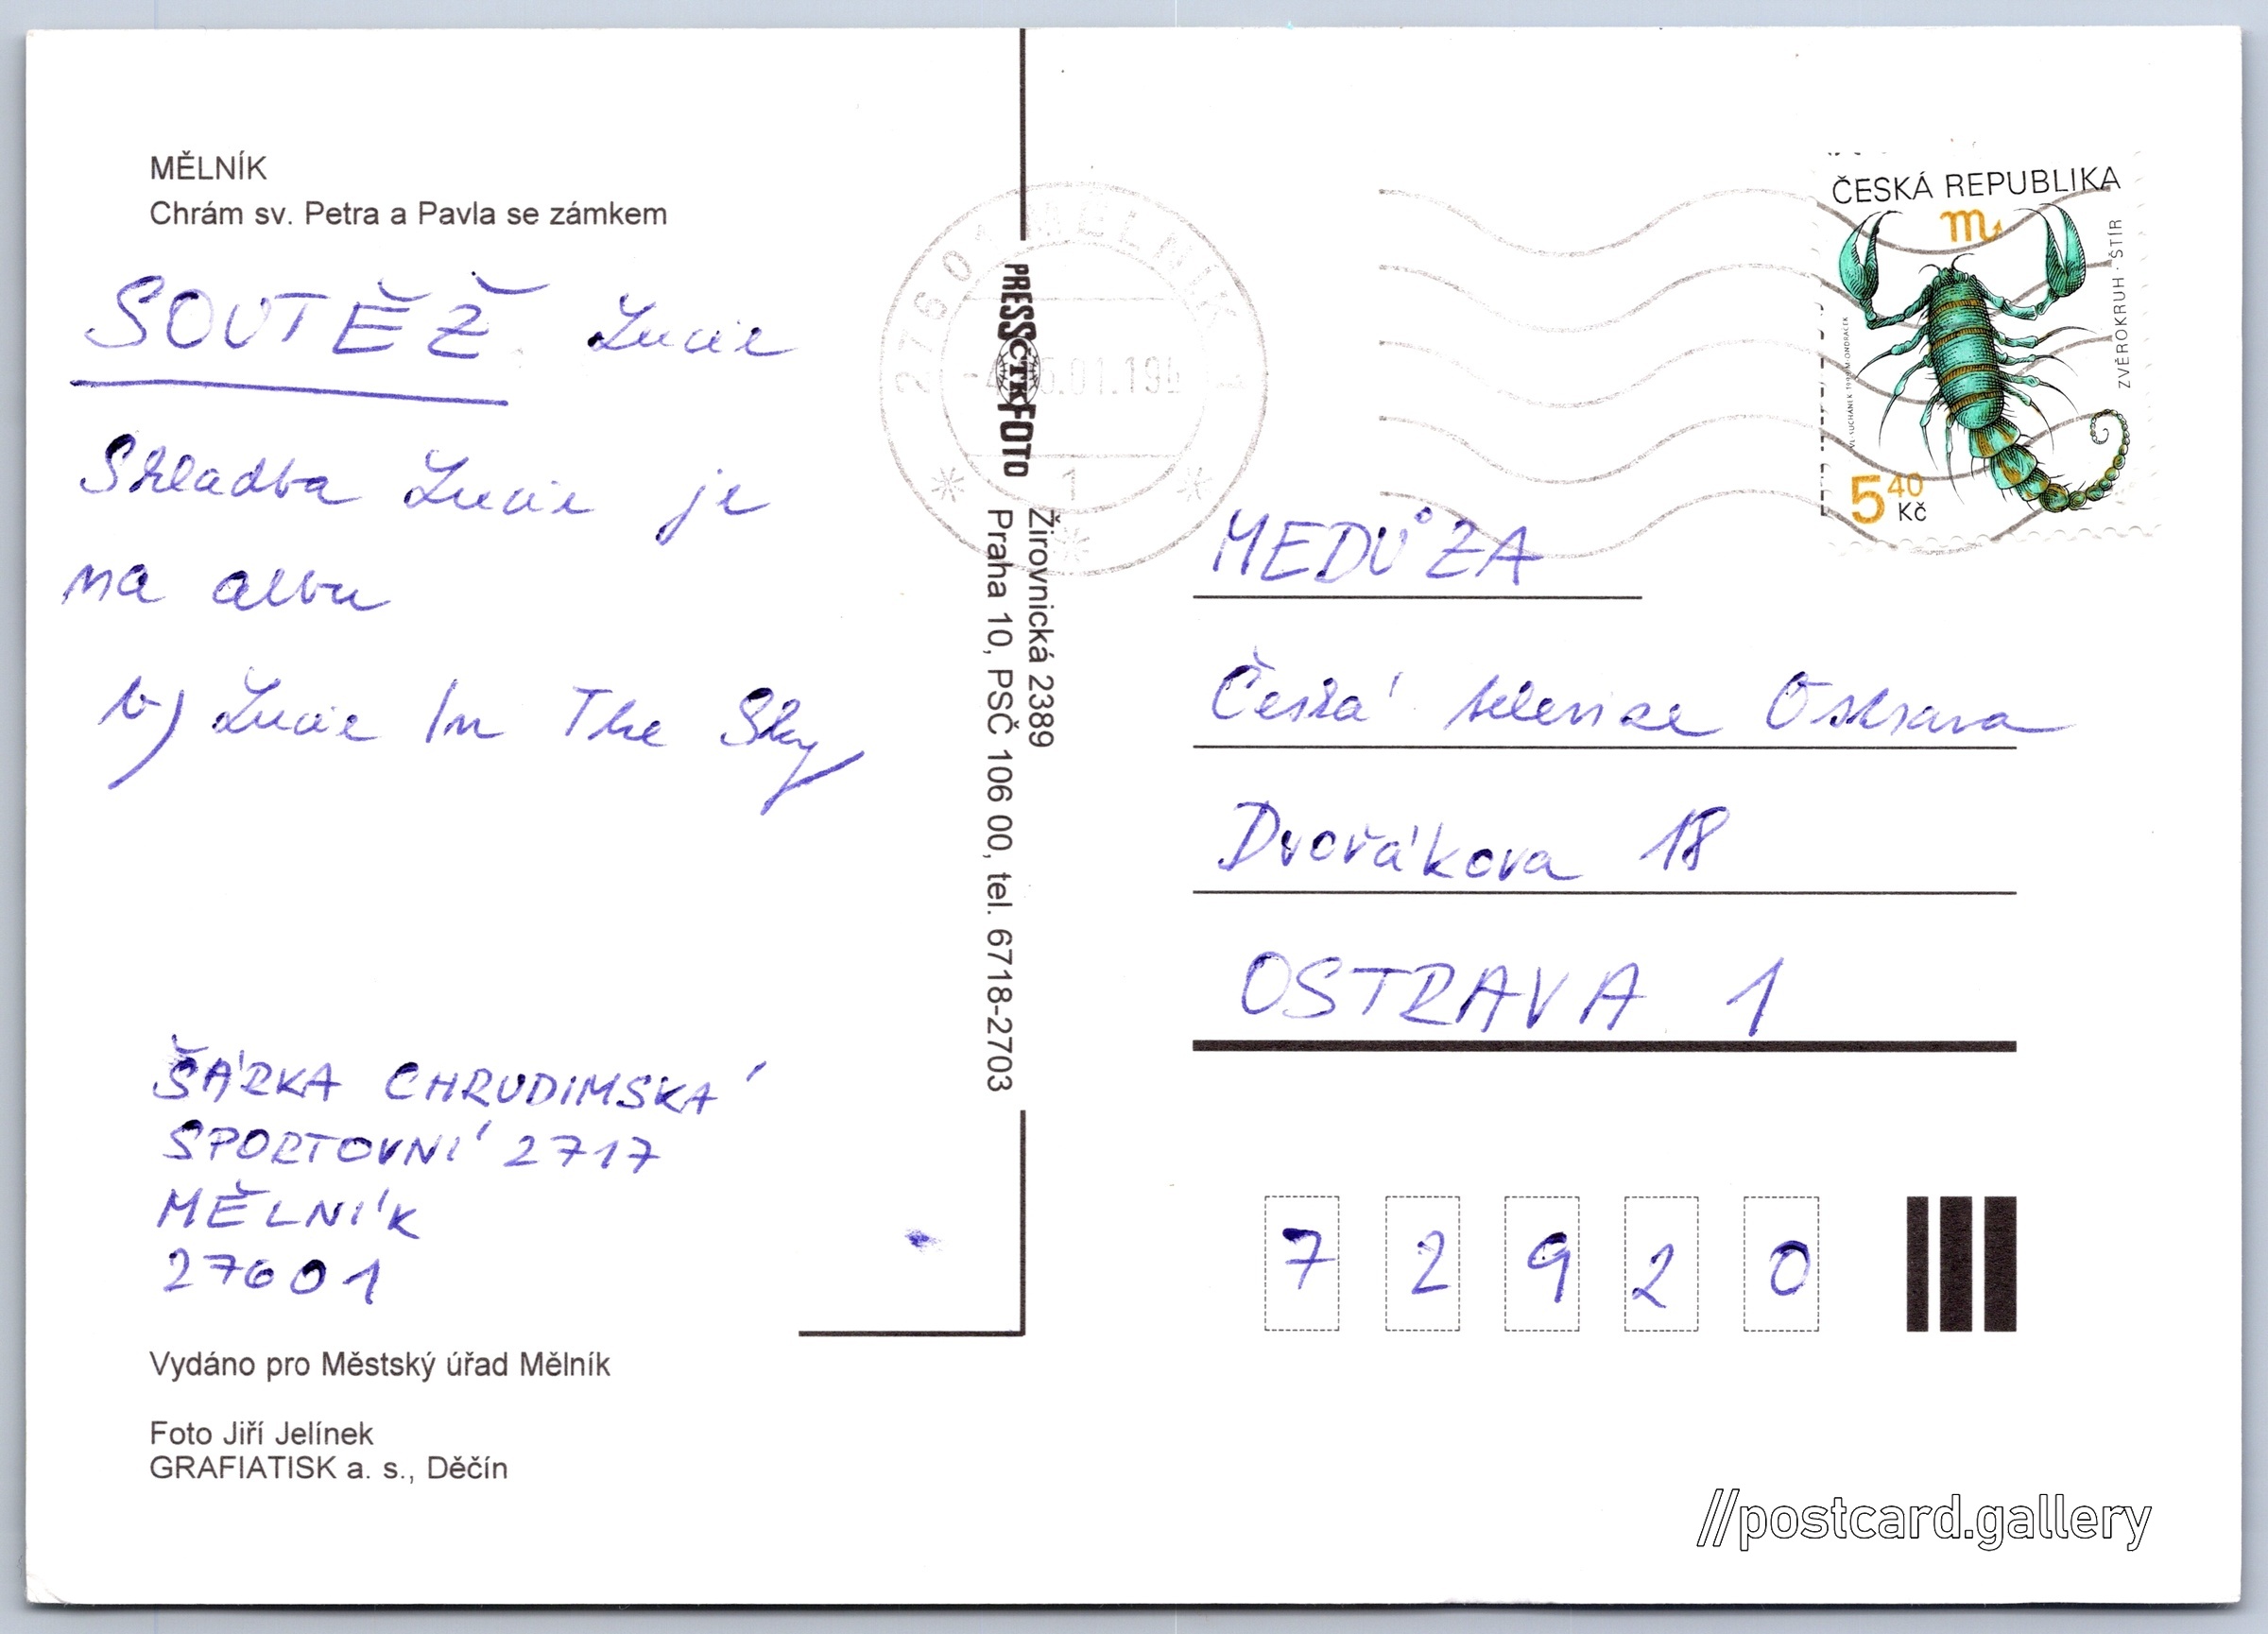 MĚLNÍK
Chrám sv. Petra a Pavla se zámkem
SOUTĚŽ Lucie
Skladba Lucie je
na albu
b) Lucie In The Sky
ŠÁRKA CHRUDIMSKÁ
SPORTOVNÍ 2717
MĚLNÍK
27601
Vydáno pro Městský úřad Mělník
Foto Jiří Jelínek
GRAFIATISK a. s., Děčín
PRESS ČTK FOTO
Žirovnická 2389
Praha 10, PSČ 106 00, tel. 6718-2703
276 01 MĚLNÍK
1
ČESKÁ REPUBLIKA
ZVĚROKRUH · ŠTÍR
5 40 Kč
MEDŮZA
Česká televize Ostrava
Dvořákova 18
OSTRAVA 1
7 2 9 2 0
//postcard.gallery